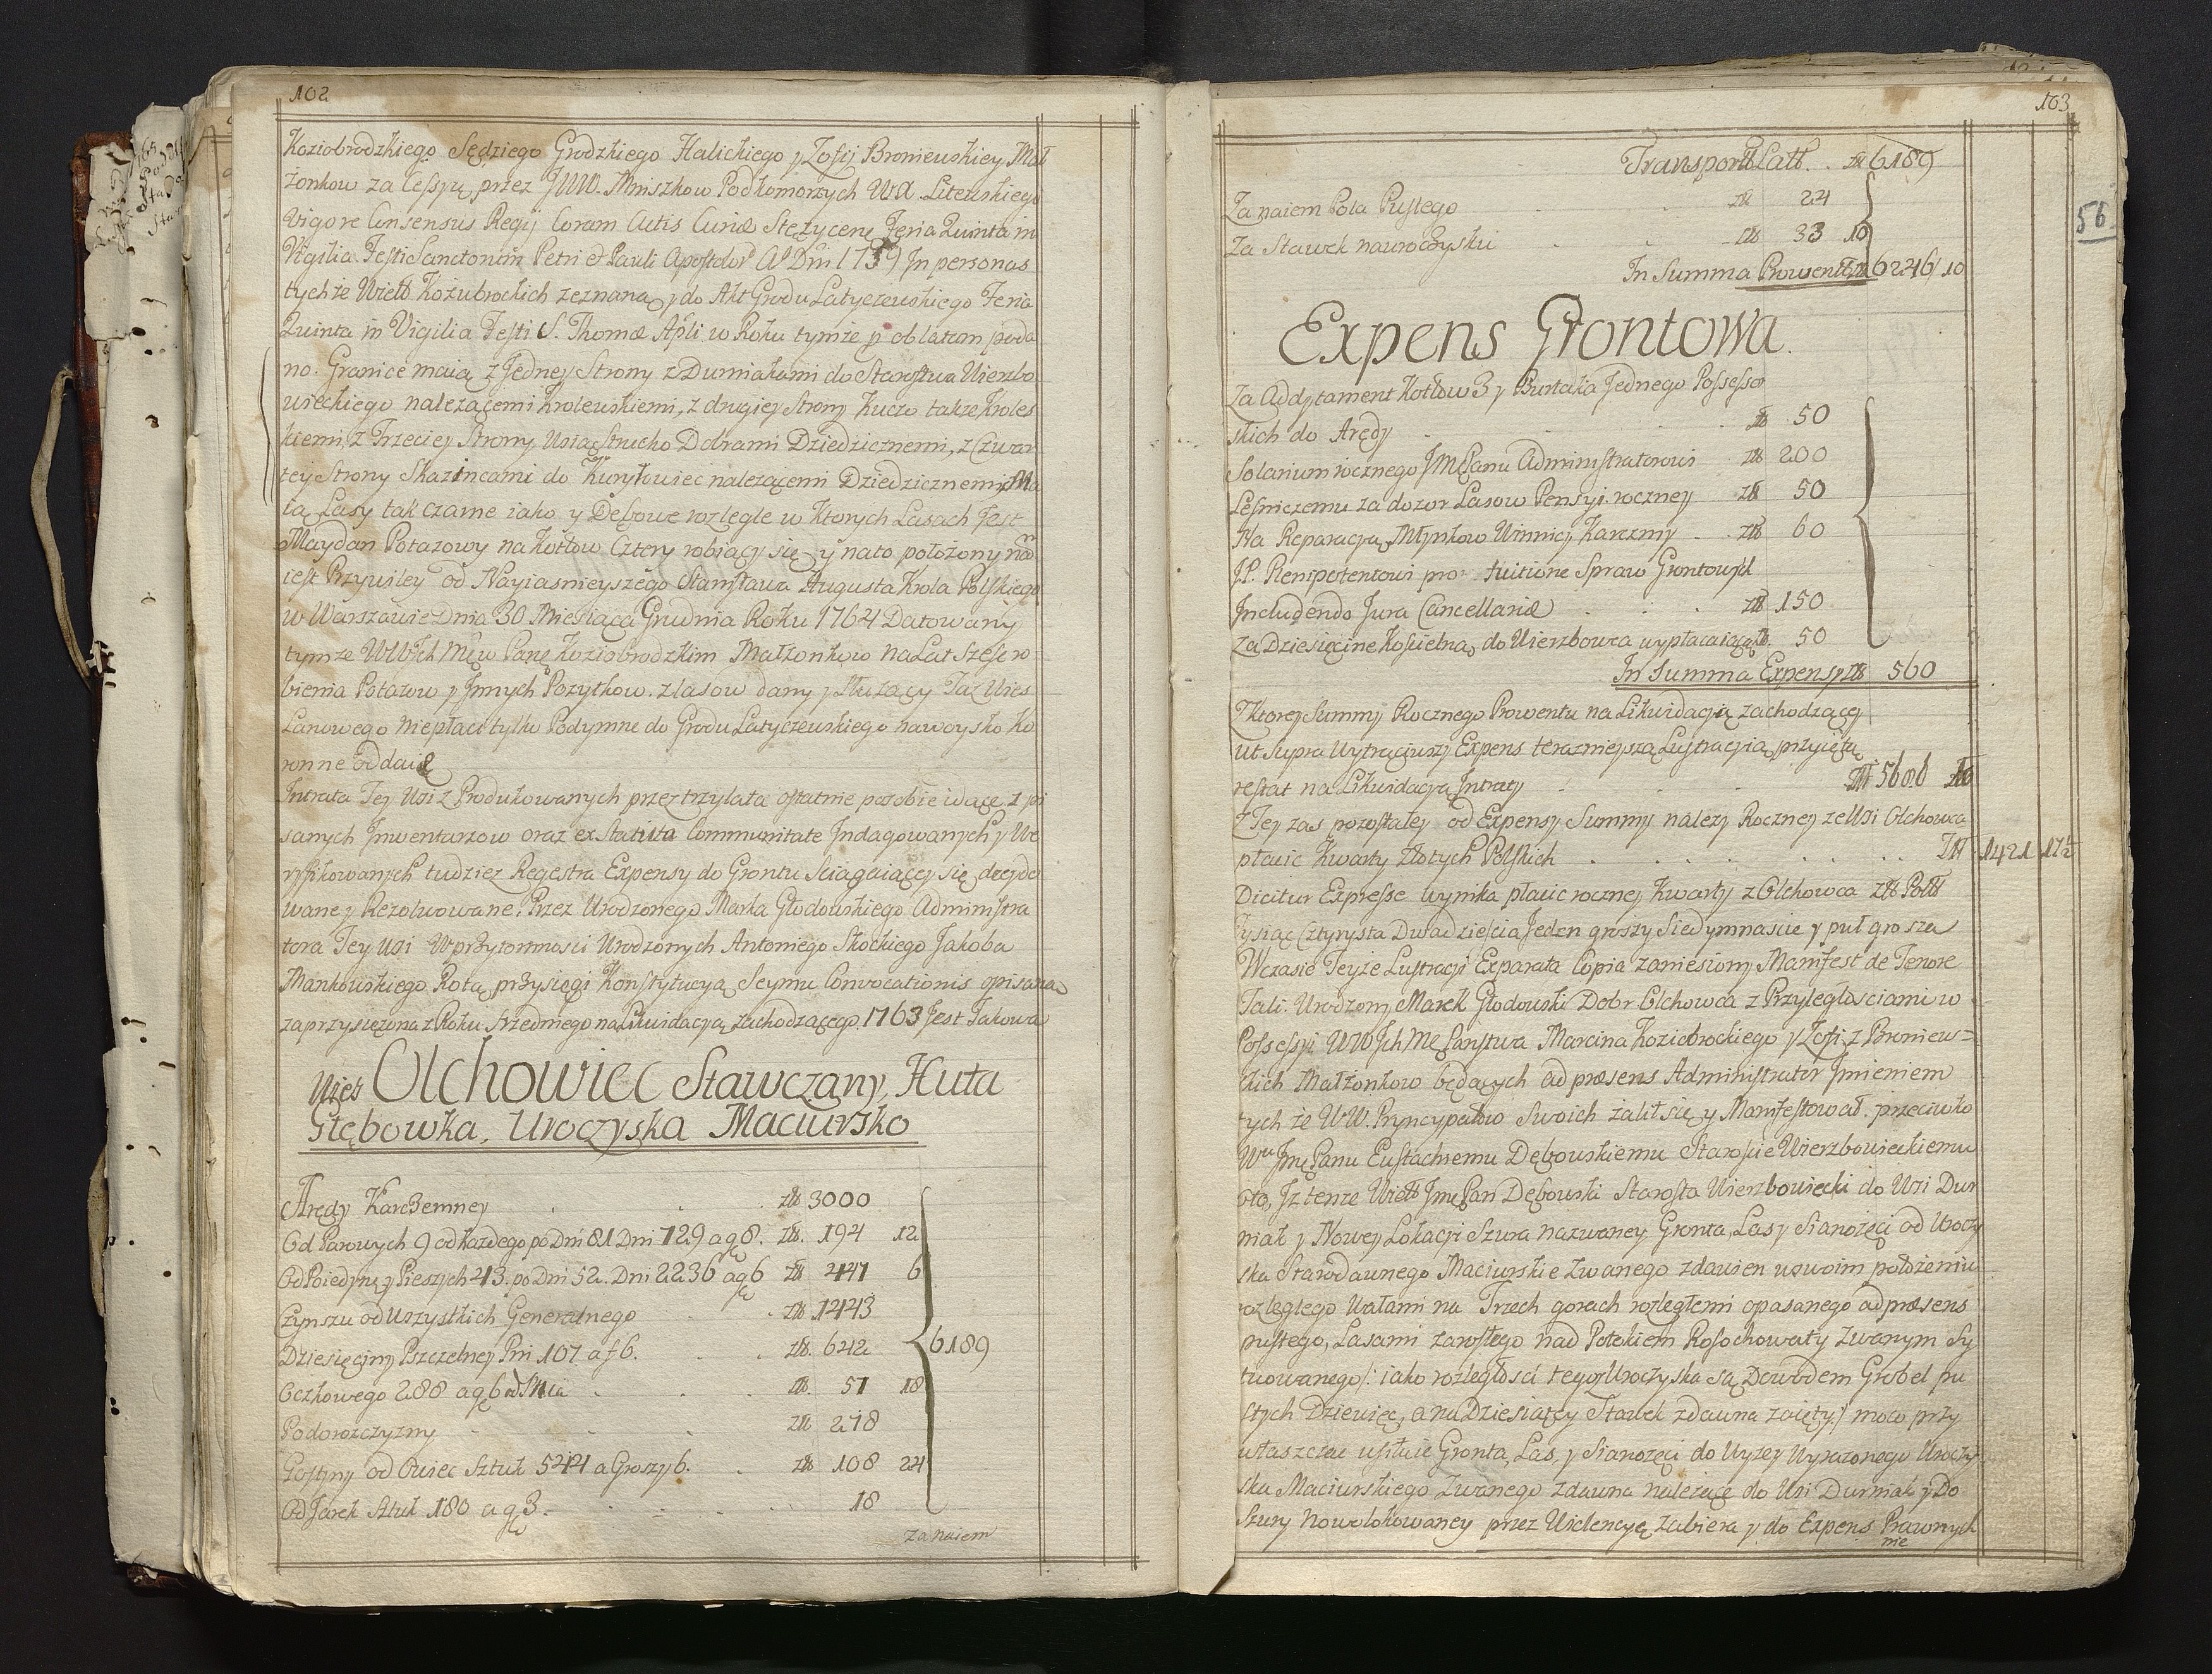 102
Koziobrodzkiego Sędziego Grodzkiego Halickiego y Zofij Broniewskiey Mał
żonkow za Cessyą przez JWW. Mniszkow Podkomorzych W.X. Litewskiego
Vigore Consensus Regij Coram Actis Curiæ Stezycen Feria Quinta in
Vigilia Festi Sanctorum Petri et Pauli Apostolor Aº Dni 1759 In personas
tychże Wielb Kozubrockich zeznaną y do Akt Grodu Latyczewskiego Feria
Quinta in Vigilia Festi S. Thomæ Apli w Roku tymże p oblatam poda
no. Granice maią z Jedney Strony z Durniakami do Starostwa Wierzbo
wieckiego należącemi Krolewskiemi, z drugiey Strony Kucze także Kroles
kiemi, z Trzeciey Strony Wsią Strucho Dobrami Dziedzicznemi, z Czwar
tey Strony Skazincami do Kuryłowiec należącemi Dziedzicznemi, Ma
ta Lasy tak czarne iako y Dębowe rozlegle w ktorych Lasach Jest
Maydan Potazowy na kotłow Cztery robiący się y na to położony nã
iest Przywiley od Nayiasnieyszego Stanisława Augusta Krola Polskiego
w Warszawie Dnia 30 Miesiąca Grudnia Roku 1764 Datowany
tymże WWJch Męw Panę Koziobrodzkim Małżonkow na Lat Szesc ro
bienia Potazow y Jnnych Pozytkow z lasow dany y służący Taż Wies
Lanowego niepłaci tylko Podymne do Grodu Latyczewskiego na woysko Ko
ronne oddaie
Intrata Tey Wsi z Produkowanych przez trzy lata ostatnie po sobie idące spi
sanych Jnwentarzow oraz ex Statuta Communitate Jndagowanych y We
ryfikowanych tudziez Regestra Expensy do Grontu sciągaiącey się decydo
wane y Rezolwowane. Przez Urodzonego Marka Głodowskiego Administra
tora Tey Wsi w przytomnosci Urodzonych Antoniego Skockiego Jakoba
Mankowskiego Rotą przysięgi Konstytucyą Seymu Convocationis opisaną
zaprzysiężona z Roku srzedniego na Likwidacyą zachodzącego 1763 Jest Takowa
Wies Olchowiec Stawczany, Huta
Głębowka, Uroczyska Maciursko
Arędy Karczemney . . . zł 3000
Od Parowych 9 od każdego po Dni 81 Dni 729 a gę 8. zł. 194 12
Od Poiedynę y Pieszych 43. po Dni 52. Dni 2236 a gę 6 zł 447 6
Czynszu od wszystkich Generalnego . zł. 1443
Dziesięciny Pszczelney Pni 107 a f 6. . . zł. 642
6189
Oczkowego 288 a gę 6 od Pnia . . . zł. 57 18
Podorozczyzny . . . zł 278
Gostiny od Owiec Sztuk 544 a Groszy 6. . zł 108 24
Od Jarek Sztuk 180 a gę 3. . . . 18
za naiem
103
56
Transport Latt. . zł 6189
Za naiem Pola Pustego . . zł 24
Za Stawek na uroczysku . . zł 33 10
In Summa Prowentu zł 6246 10
Expens Grontowa.
Za Addytament Kotłow 3 y Burtaka Jednego Possesso
skich do Arędy . . . zł 50
Solarium rocznego JMPanu Administratorowi . zł 200
Lesniczemu za dozor Lasow Pensyi roczney zł 50
Na Reparacyą Młynkow Winnicy Karczmy . zł 60
JP. Plenipotentowi pro tuitione Spraw Grontowych
Includendo Jura Cancellariæ . . . zł 150
Za Dziesięcinę Koscielną do Wierzbowca wypłacaiącą zł. 50
In Summa Expensy zł 560
Z ktorey Summy Rocznego Prowentu na Likwidacyią zachodzącey
ut Supra wytrąciwszy Expens terazniejszą Lustracyią przyiętą
restat na Likwidacyą Intraty . . . zł 5686 10
z Tey zas pozostałey od Expensy Summy należy Roczney ze Wsi Olchowca
płacic Kwarty Złotych Polskich . . . . . . zł 1421 17½
Dicitur Expresse wynika płacic roczney Kwarty z Olchowca zł Poll
Tysiąc Cztyrysta Dwadziescia Jeden groszy Siedymnascie y puł grosza
W czasie Teyże Lustracyi Exparata Copia zaniesiony Manifest de Tenore
Tali. Urodzony Marek Głodowski Dobr Olchowca z Przyległosciami w
Possessyi WWJch Mę Panstwa Marcina Koziobrockiego y Zofij z Broniews=
kich Małżonkow będących ad præsens Administrator Jmieniem
tych że WW. Pryncypałow Swoich żalił się y Manifestował przeciwko
Wu Jmę Panu Eustachemu Dębowskiemu Staroscie Wierzbowieckiemu
oto, Jż tenze Wielb Jmę Pan Dębowski Starosta Wierzbowiecki do Wsi Dur
niak y Nowey Lokacyi Szura nazwaney Gronta, Lasy Sianożęci od Uroczy
ska Starodawnego Maciurskie zwanego zdawien w swoim położeniu
rozległego Wałami na Trzech gorach rozległemi opasanego ad præsens
pustego, Lasami zarosłego nad Potokiem Rosochowaty zwanym Sy
tuowanego /: iako rozległosci tego Uroczyska są Dowodem Grobel pu
stych Dziewięc, a na Dziesiątey Stawek zdawna zaięty :/ moco przy
właszczac usiłuie Gronta, Las, y Sianożęci do Wyzey Wyrazonego Uroczy
ska Maciurskiego zwanego zdawna należące do Wsi Durniak y Do
Szury Nowolokowaney przez Wiolencyę zabiera y do Expens Prawnych
nie